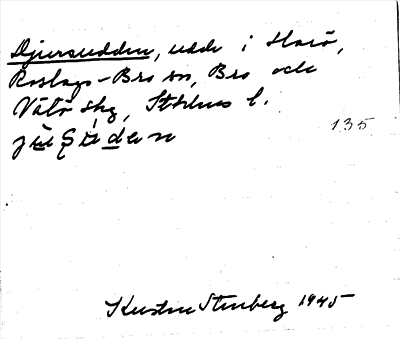 Djursudden, udde i Harö,
Roslags-Bro sn, Bro och
Vätö skg, Sthlms l.
135
Kerstin Stenberg 1945